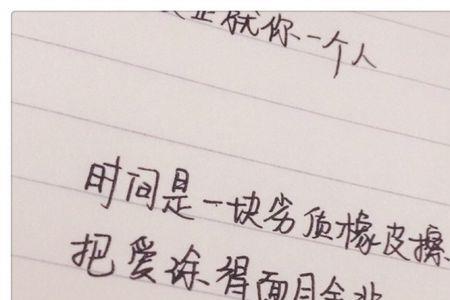 就你一个人
时间是一块劣质橡皮擦
把爱涂得面目全非